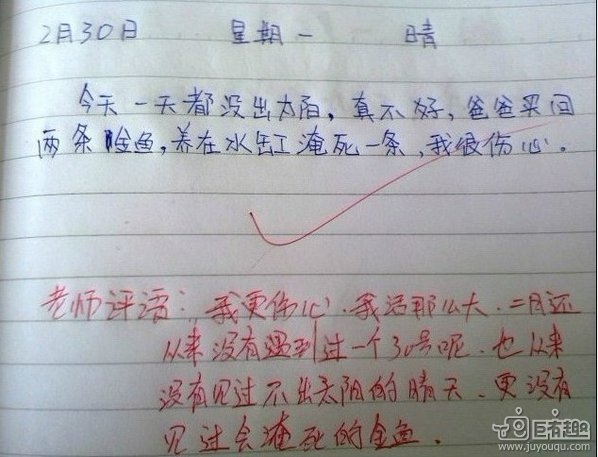 2月30日 星期一 晴
今天一天都没出太阳,真不好,爸爸买回
两条金鱼,养在水缸淹死一条,我很伤心。
老师评语:我更伤心.我活那么大.二月还
从来没有遇到过一个30号呢.也从来
没有见过不出太阳的晴天.更没有
见过会淹死的金鱼.
巨有趣
www.juyouqu.com